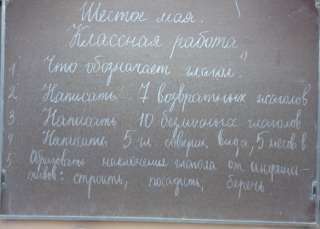 Шестое мая.
Классная работа
1 Что обозначает глагол?
2 Написать 7 возвратных глаголов
3 Написать 10 безличных глаголов
4 Написать 5 гл. соверш. вида, 5 несов. в
5 Образовать наклонения глагола от инфини-
тивов: строить, посадить, беречь